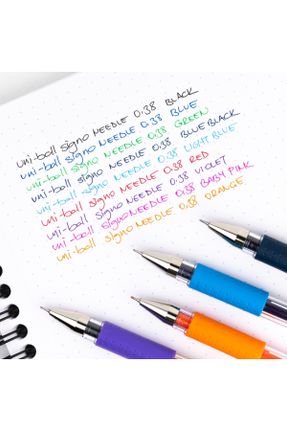 uni-ball signo NEEDLE 0.38 BLACK
uni-ball signo NEEDLE 0.38 BLUE
uni-ball signo NEEDLE 0.38 GREEN
uni-ball signo NEEDLE 0.38 BLUE BLACK
uni-ball signo NEEDLE 0.38 LIGHT BLUE
uni-ball signo NEEDLE 0.38 RED
uni-ball signo NEEDLE 0.38 VIOLET
uni-ball signo NEEDLE 0.38 BABY PINK
uni-ball signo NEEDLE 0.38 ORANGE